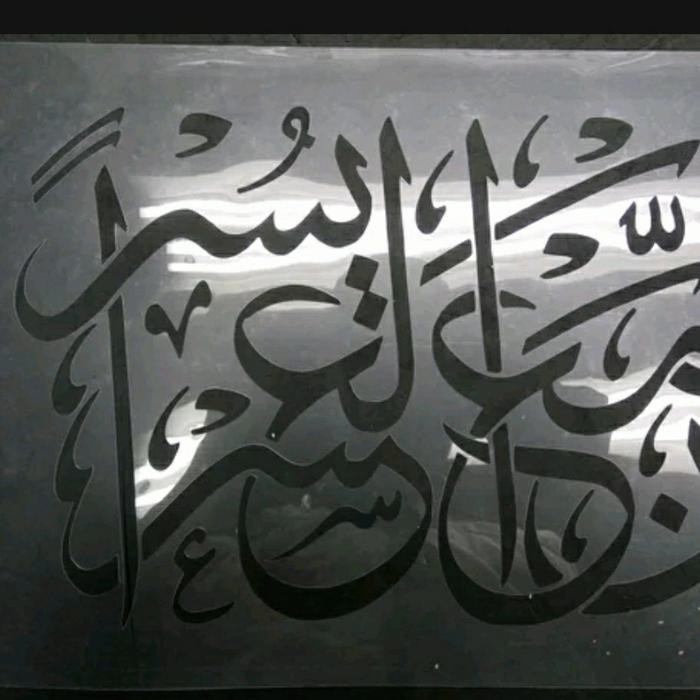 مَعَ العُسْرِ يُسْرًا